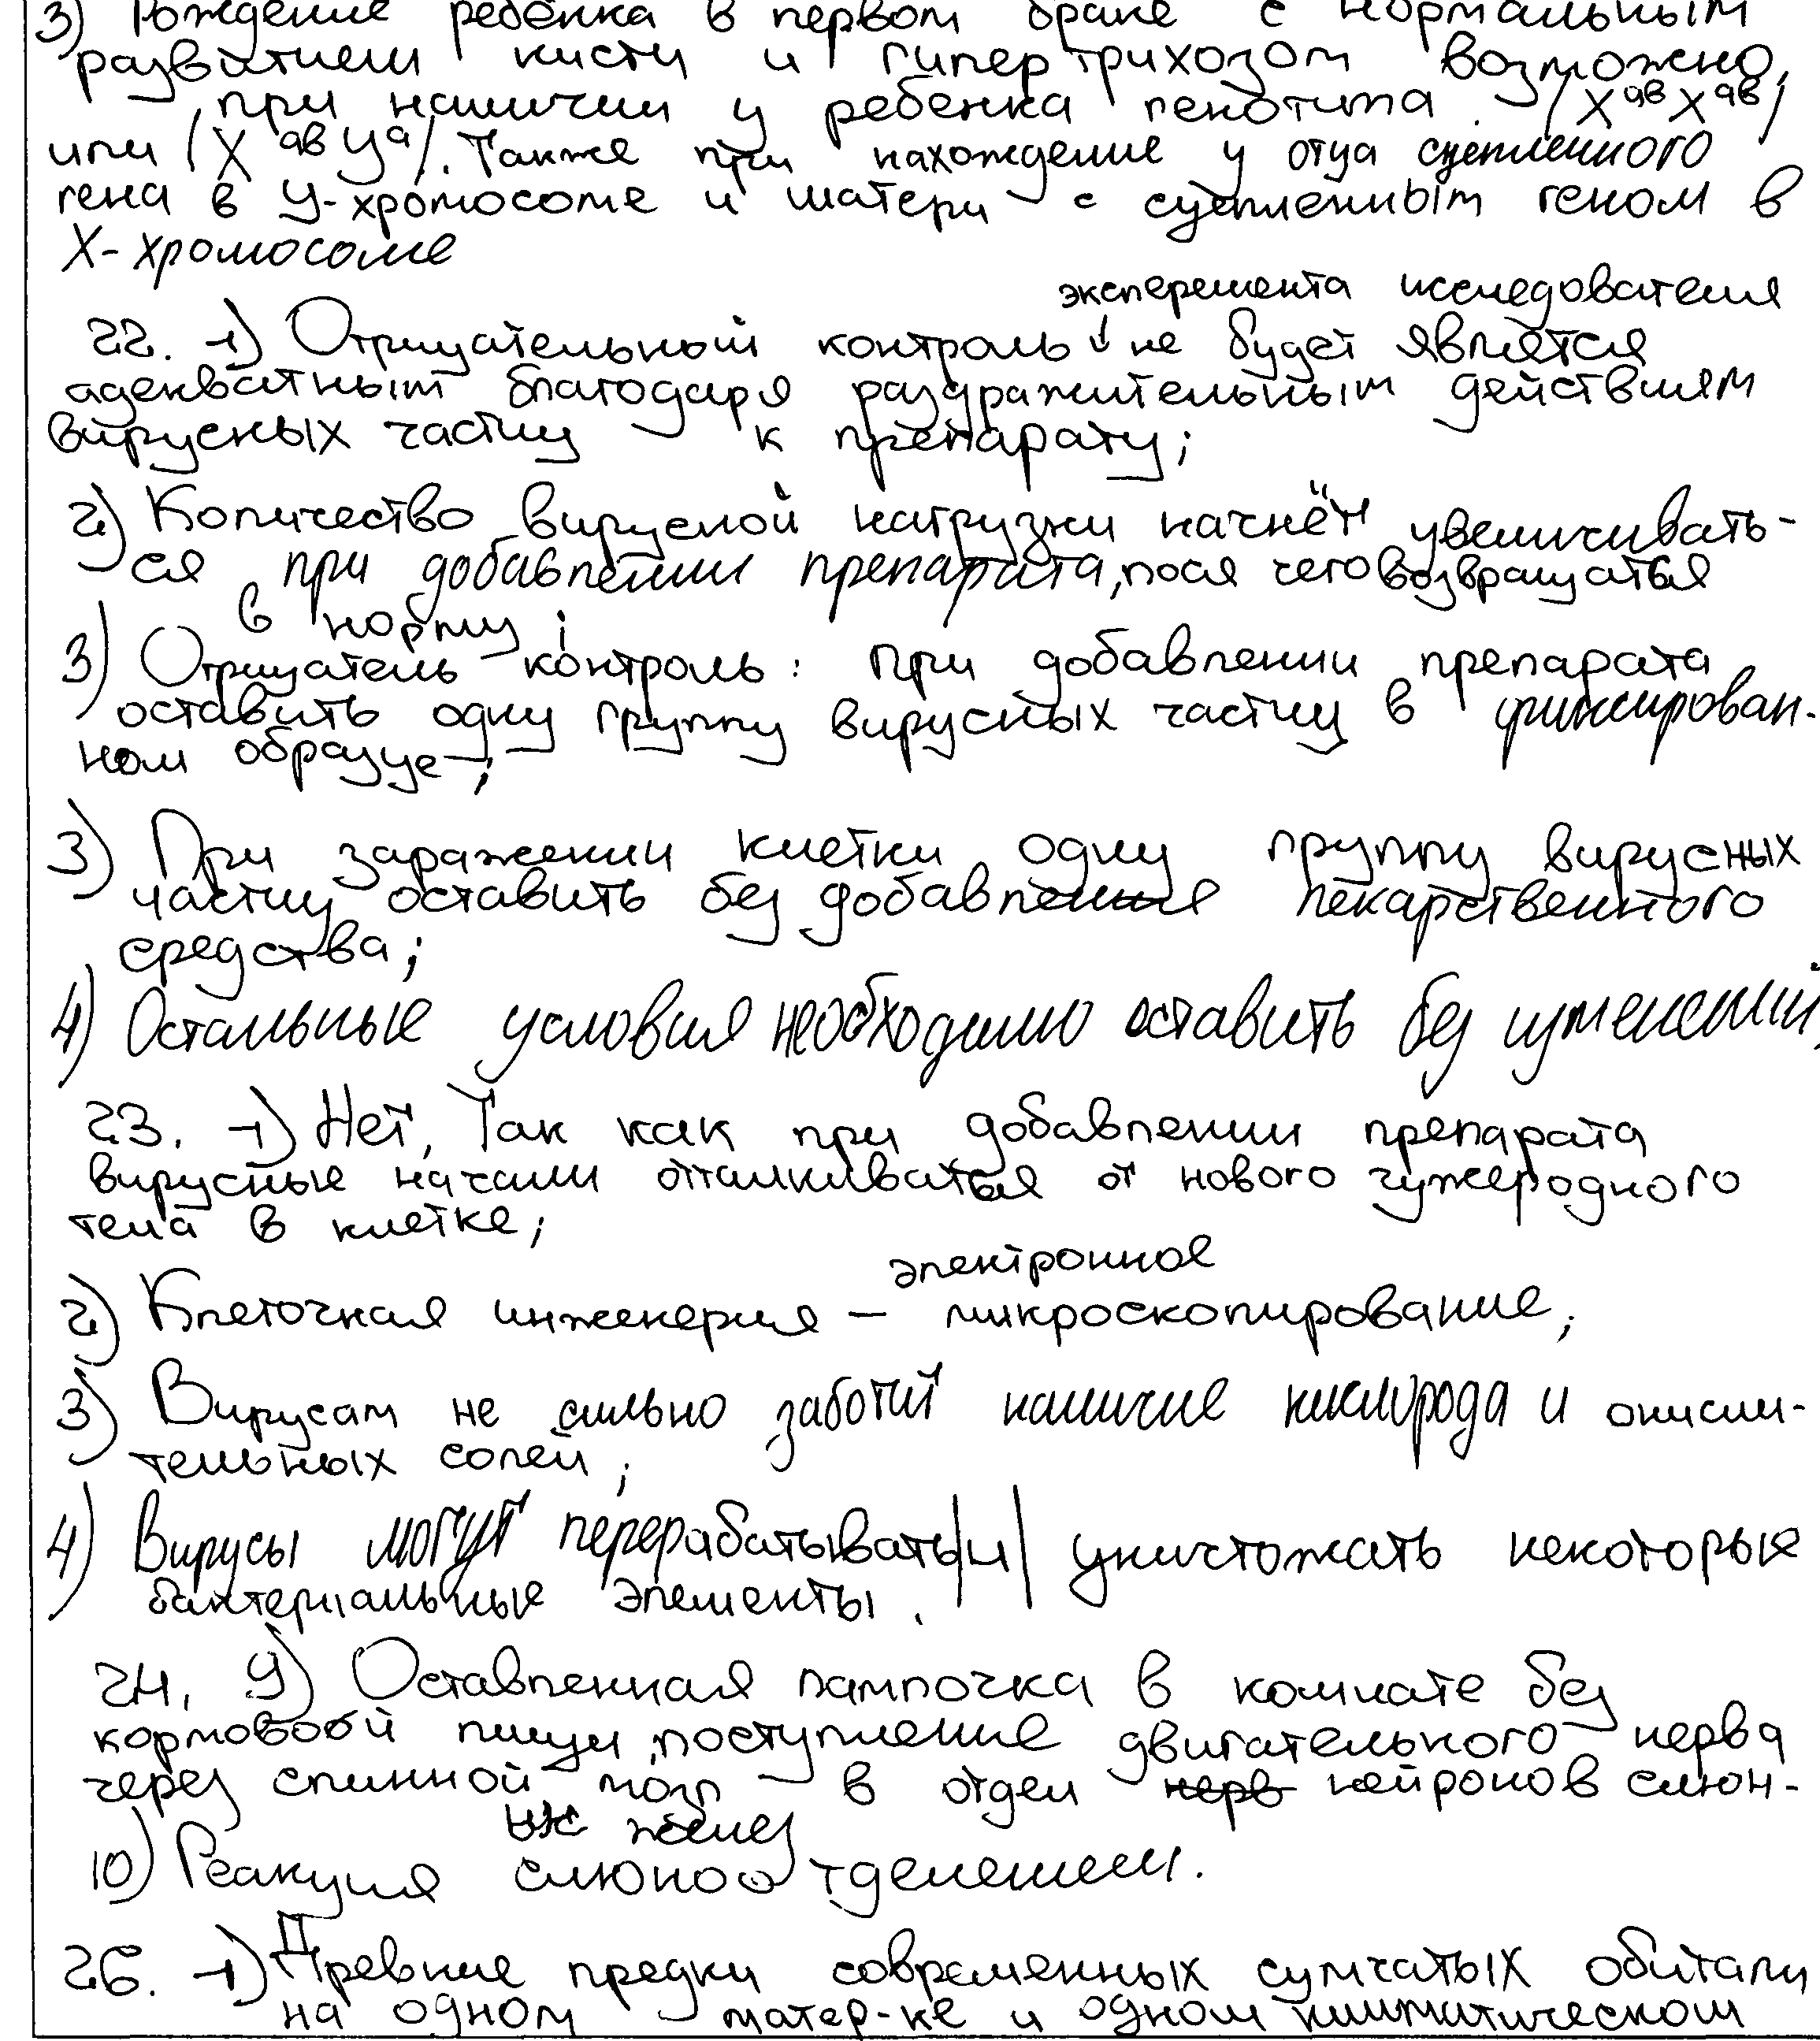 3) Рождение ребёнка в первом браке с нормальным
развитием кисти и гипертрихозом возможно,
при наличии у ребенка генотипа (X^ав X^ав)
или (X^ав У^а). Также при нахождение у отца сцепленного
гена в У-хромосоме и матери с сцепленным геном в
Х-хромосоме
эксперемента исследователя
22. 1) Отрицательный контроль ↓ не будет являтся
адекватным благодаря раздражительным действиям
вирусных частиц к препарату;
2) Количество вирусной нагрузки начнёт увеличивать-
ся при добавлении препарата, посля чего возвращаться
в норму;
3) Отрицатель контроль: при добавлении препарата
оставить одну группу вирусных частиц в фиксирован-
ном образце;
3) При заражении клетки одну группу вирусных
частиц оставить без добавления лекарственного
средства;
4) Остальные условия необходимо оставить без изменений.
23. 1) Нет, Так как при добавлении препарата
вирусные начали отталкиваться от нового чужеродного
тела в клетке;
электронное
2) Клеточная инженерия – микроскопирование;
3) Вирусам не сильно заботит наличие кислорода и окисли-
тельных солей;
4) Вирусы могут перерабатывать |и| уничтожать некоторые
бактериальные элементы.
24. 9) Оставленная лампочка в комнате без
кормовой пищи, поступление двигательного нерва
через спинной мозг в отдел нерв нейронов слюн-
ых желез
10) Реакция слюноотделением.
26. 1) Древние предки современных сумчатых обитали
на одном матер-ке и одном климатическом